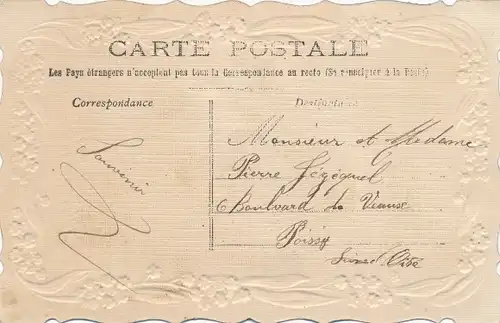 CARTE POSTALE
Les Pays étrangers n'acceptent pas tous la Correspondance au recto (Se renseigner à la Poste)
Correspondance
Destinataire
Souvenir
Monsieur et Madame
Pierre Jézéquel
6 Boulevard de
Poissy
Seine et Oise